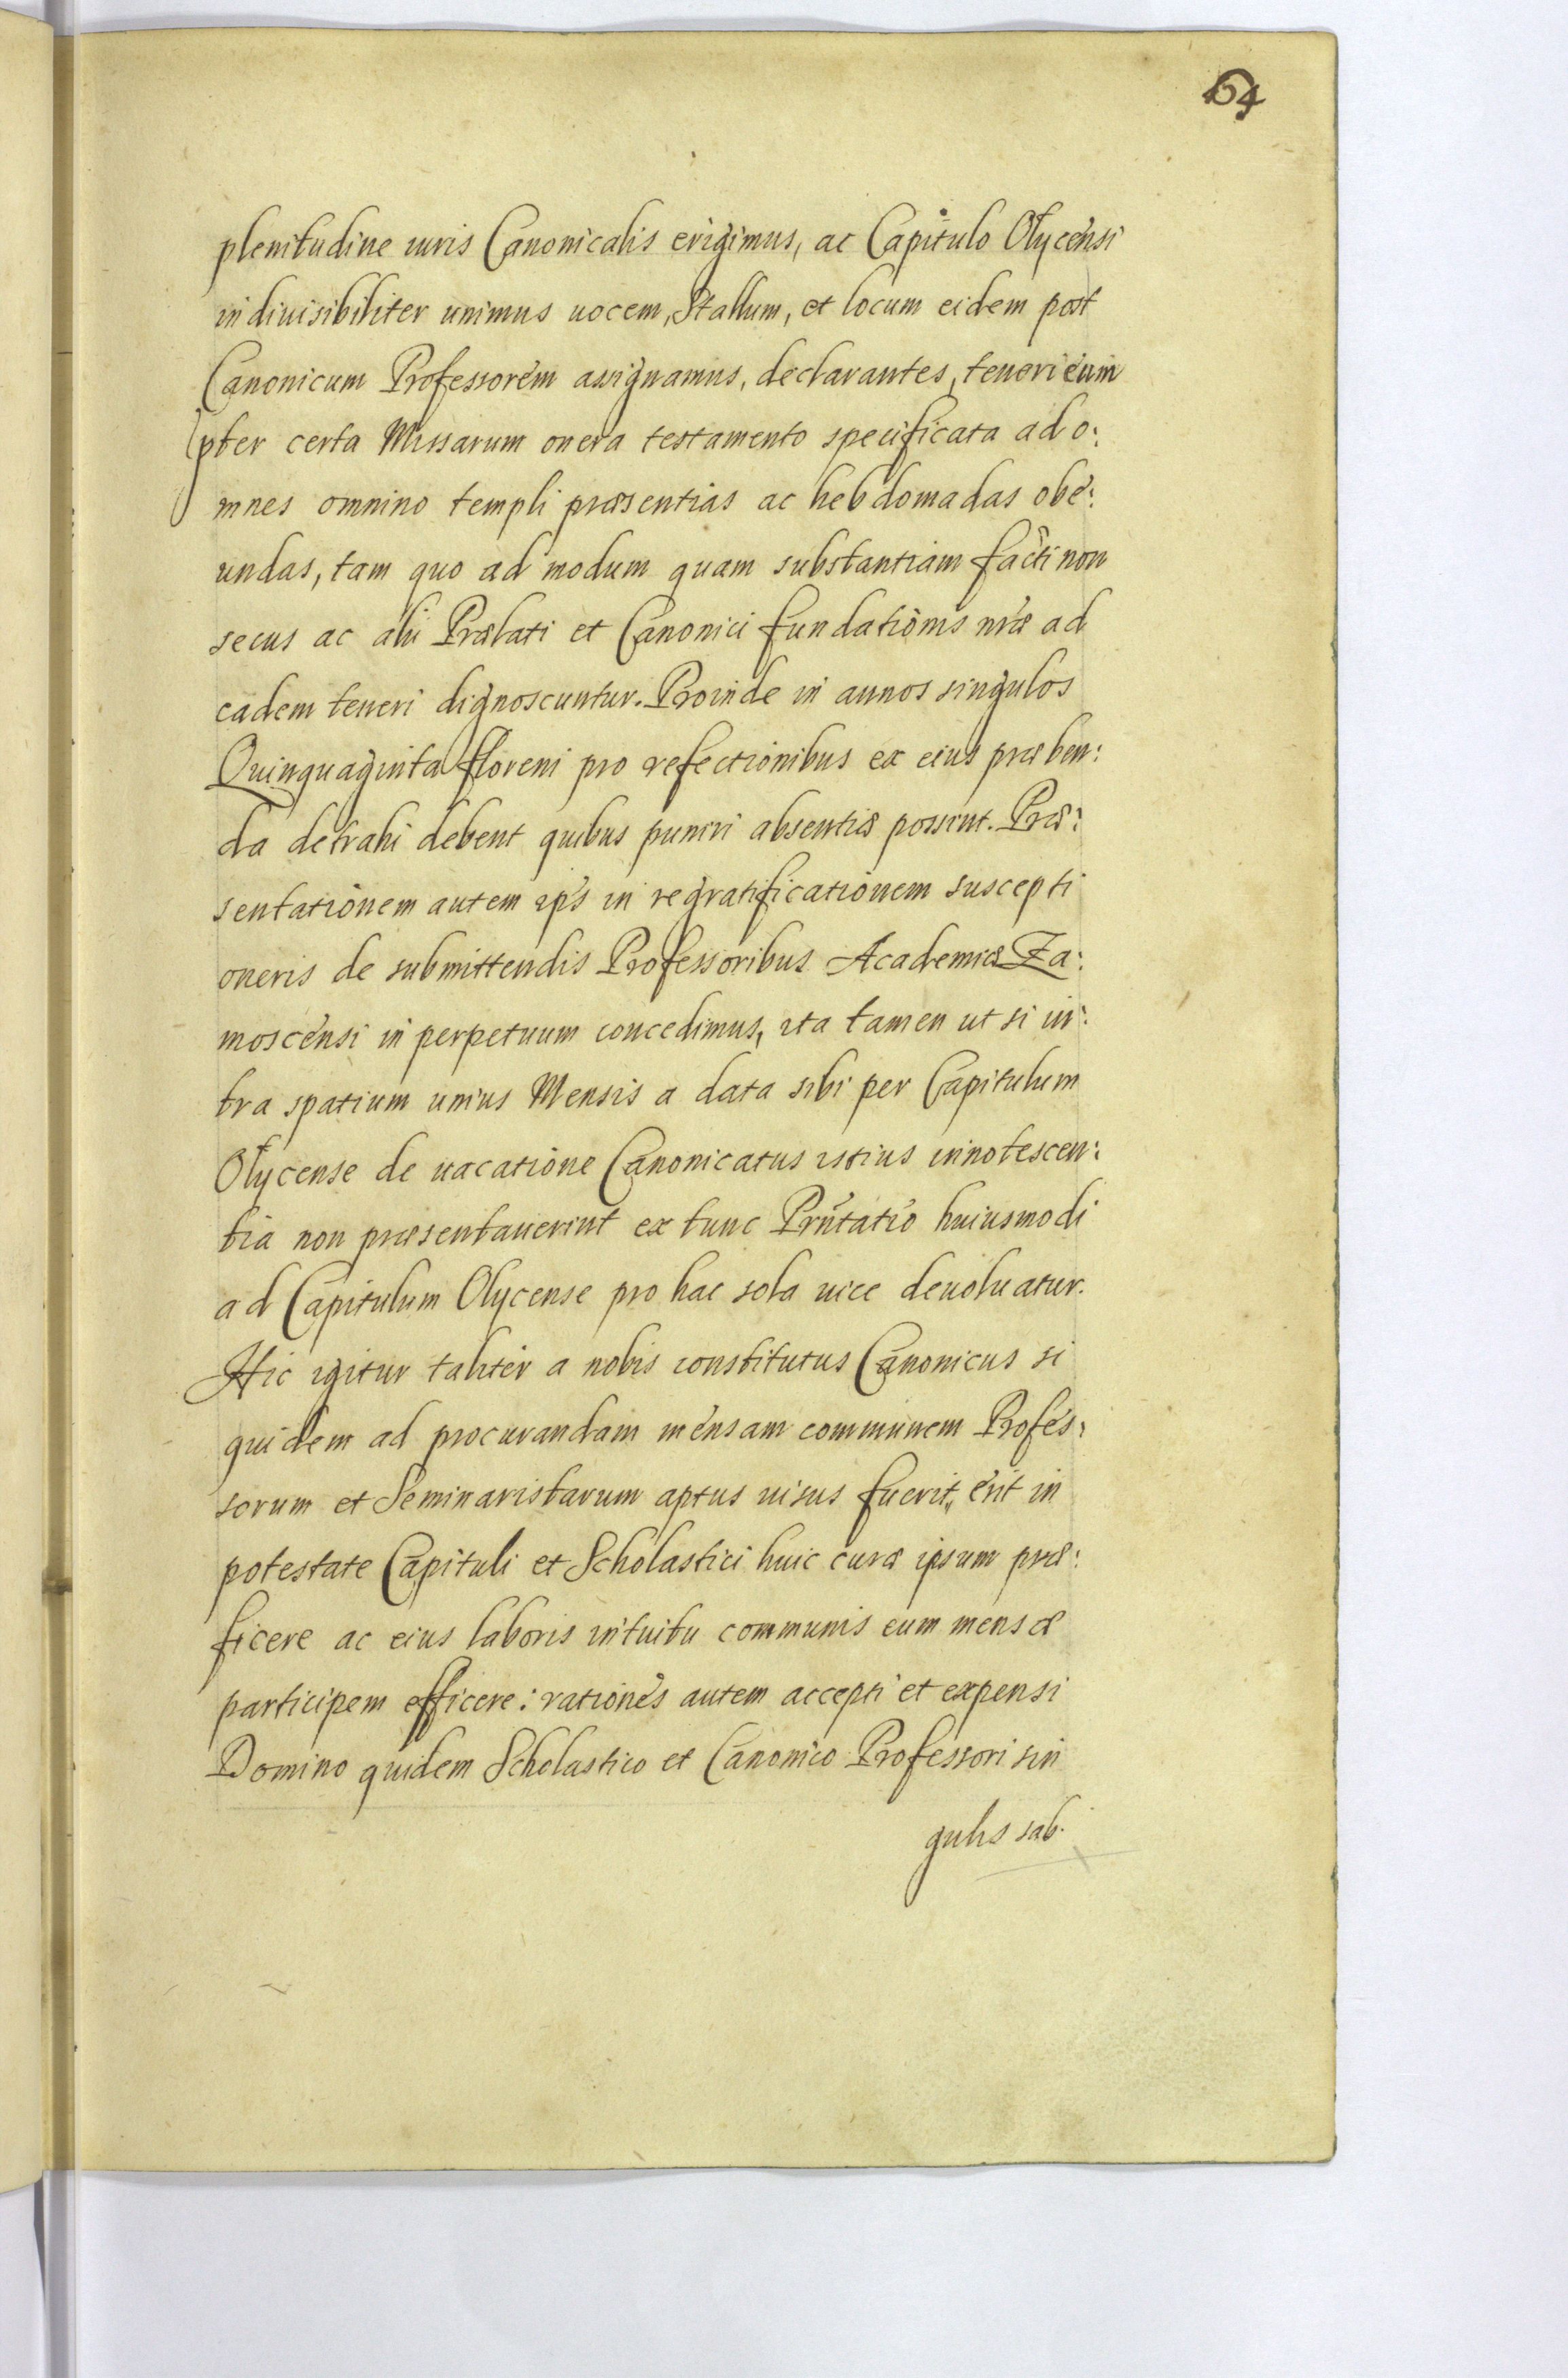 64
plenitudine iuris Canonicalis erigimus, ac Capitulo Olycensi
indiuisibiliter unimus uocem, Stallum, et locum eidem post
Canonicum Professorem assignamus, declarantes, teneri eum
pter certa Missarum onera testamento specificata ad o:
mnes omnino templi præsentias ac hebdomadas obe:
undas, tam quo ad modum quam substantiam facti non
secus ac alii Prælati et Canonici fundationis nræ ad
eadem teneri dignoscuntur. Proinde in annos singulos
Quinquaginta floreni pro refectionibus ex eius præben:
da detrahi debent quibus puniri absentiæ possint. Præ:
sentationem autem ips in regratificationem suscepti
oneris de submittendis Professoribus Academiæ Za:
moscensi in perpetuum concedimus, ita tamen ut si in:
tra spatium unius Mensis a data sibi per Capitulum
Olycense de uacatione Canonicatus istius innotescen:
tia non præsentauerint ex tunc Prntatio huiusmodi
ad Capitulum Olycense pro hac sola uice deuoluatur.
Hic igitur taliter a nobis constitutus Canonicus si
quidem ad procurandam mensam communem Profes:
sorum et Seminaristarum aptus uisus fuerit, erit in
potestate Capituli et Scholastici huic curæ ipsum præ:
ficere ac eius laboris intuitu communis eum mensæ
participem efficere: rationes autem accepti et expensi
Domino quidem Scholastico et Canonico Professori sin
gulis sab.